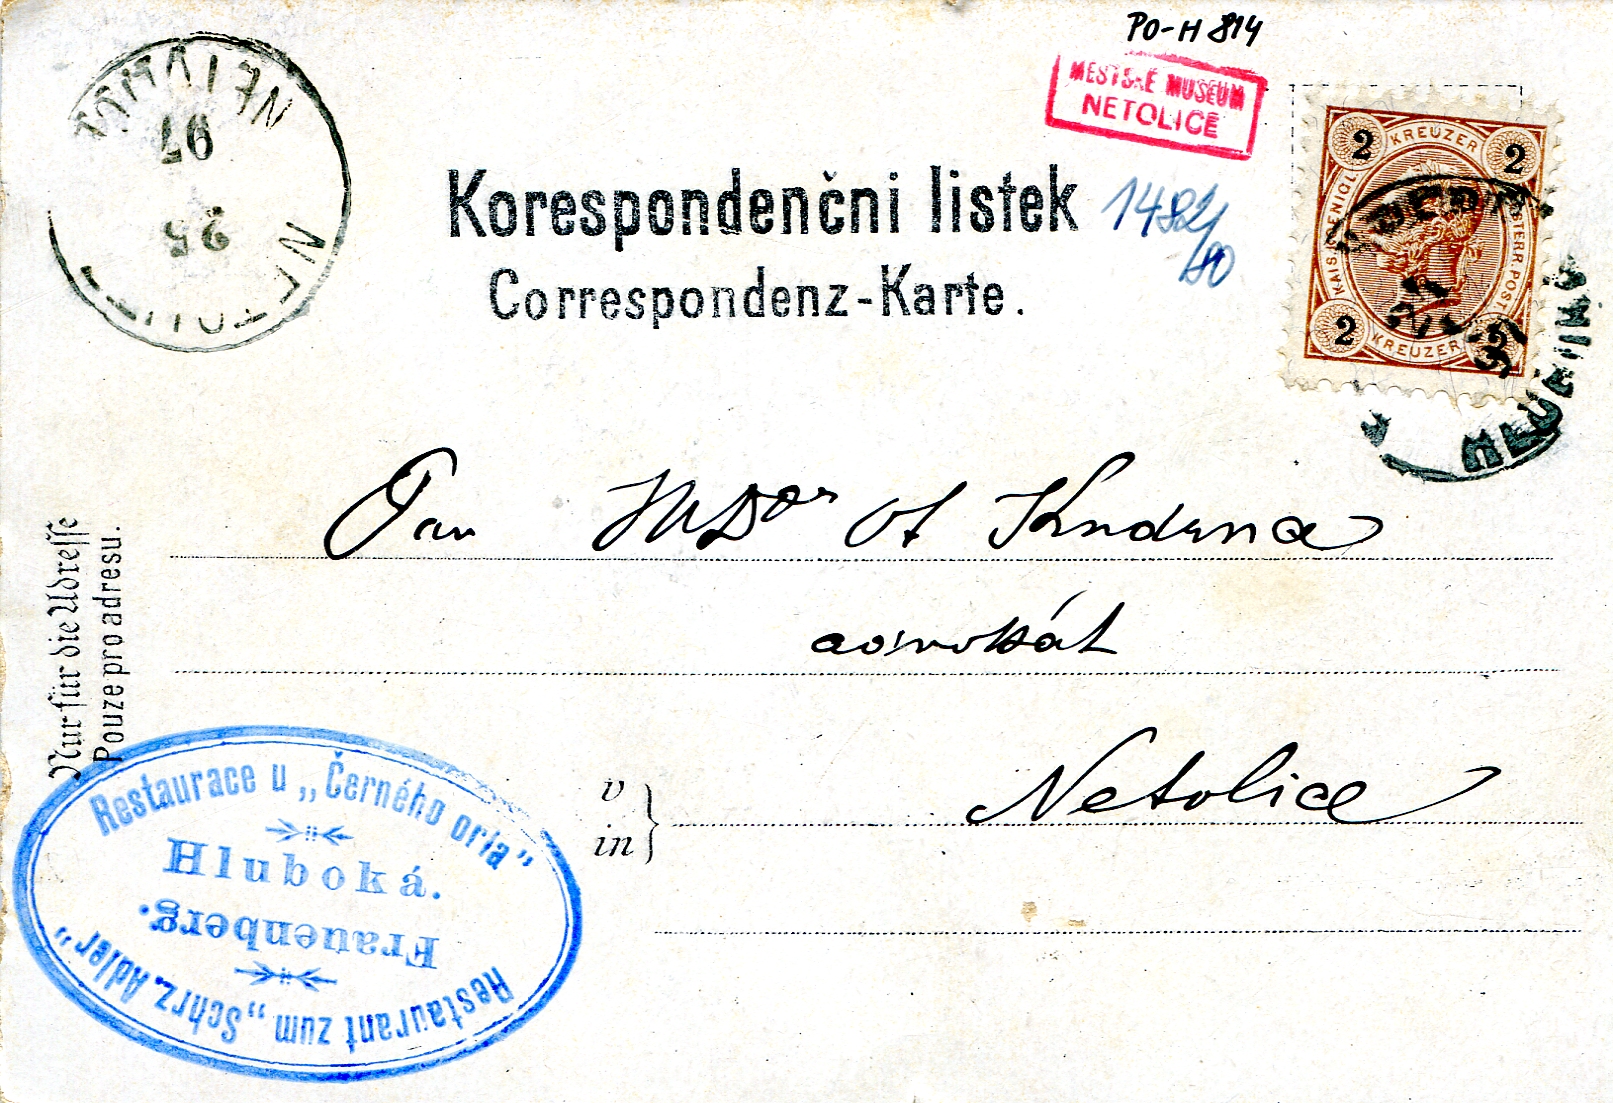 PO-H 814
MĚSTSKÉ MUSEUM
NETOLICE
Korespondenční lístek
Correspondenz-Karte.
1482/80
2 KREUZER 2
KAIS. KOENIGL. OESTERR. POST
2 KREUZER 2
HLUBOKÁ
97
25
NETOLI
Pan MDor
advokát
Netolice
v
in
Nur für die Adresse
Pouze pro adresu.
Restaurace u „Černého orla”
Hluboká.
Frauenberg.
Restaurant zum „Schrz. Adler”